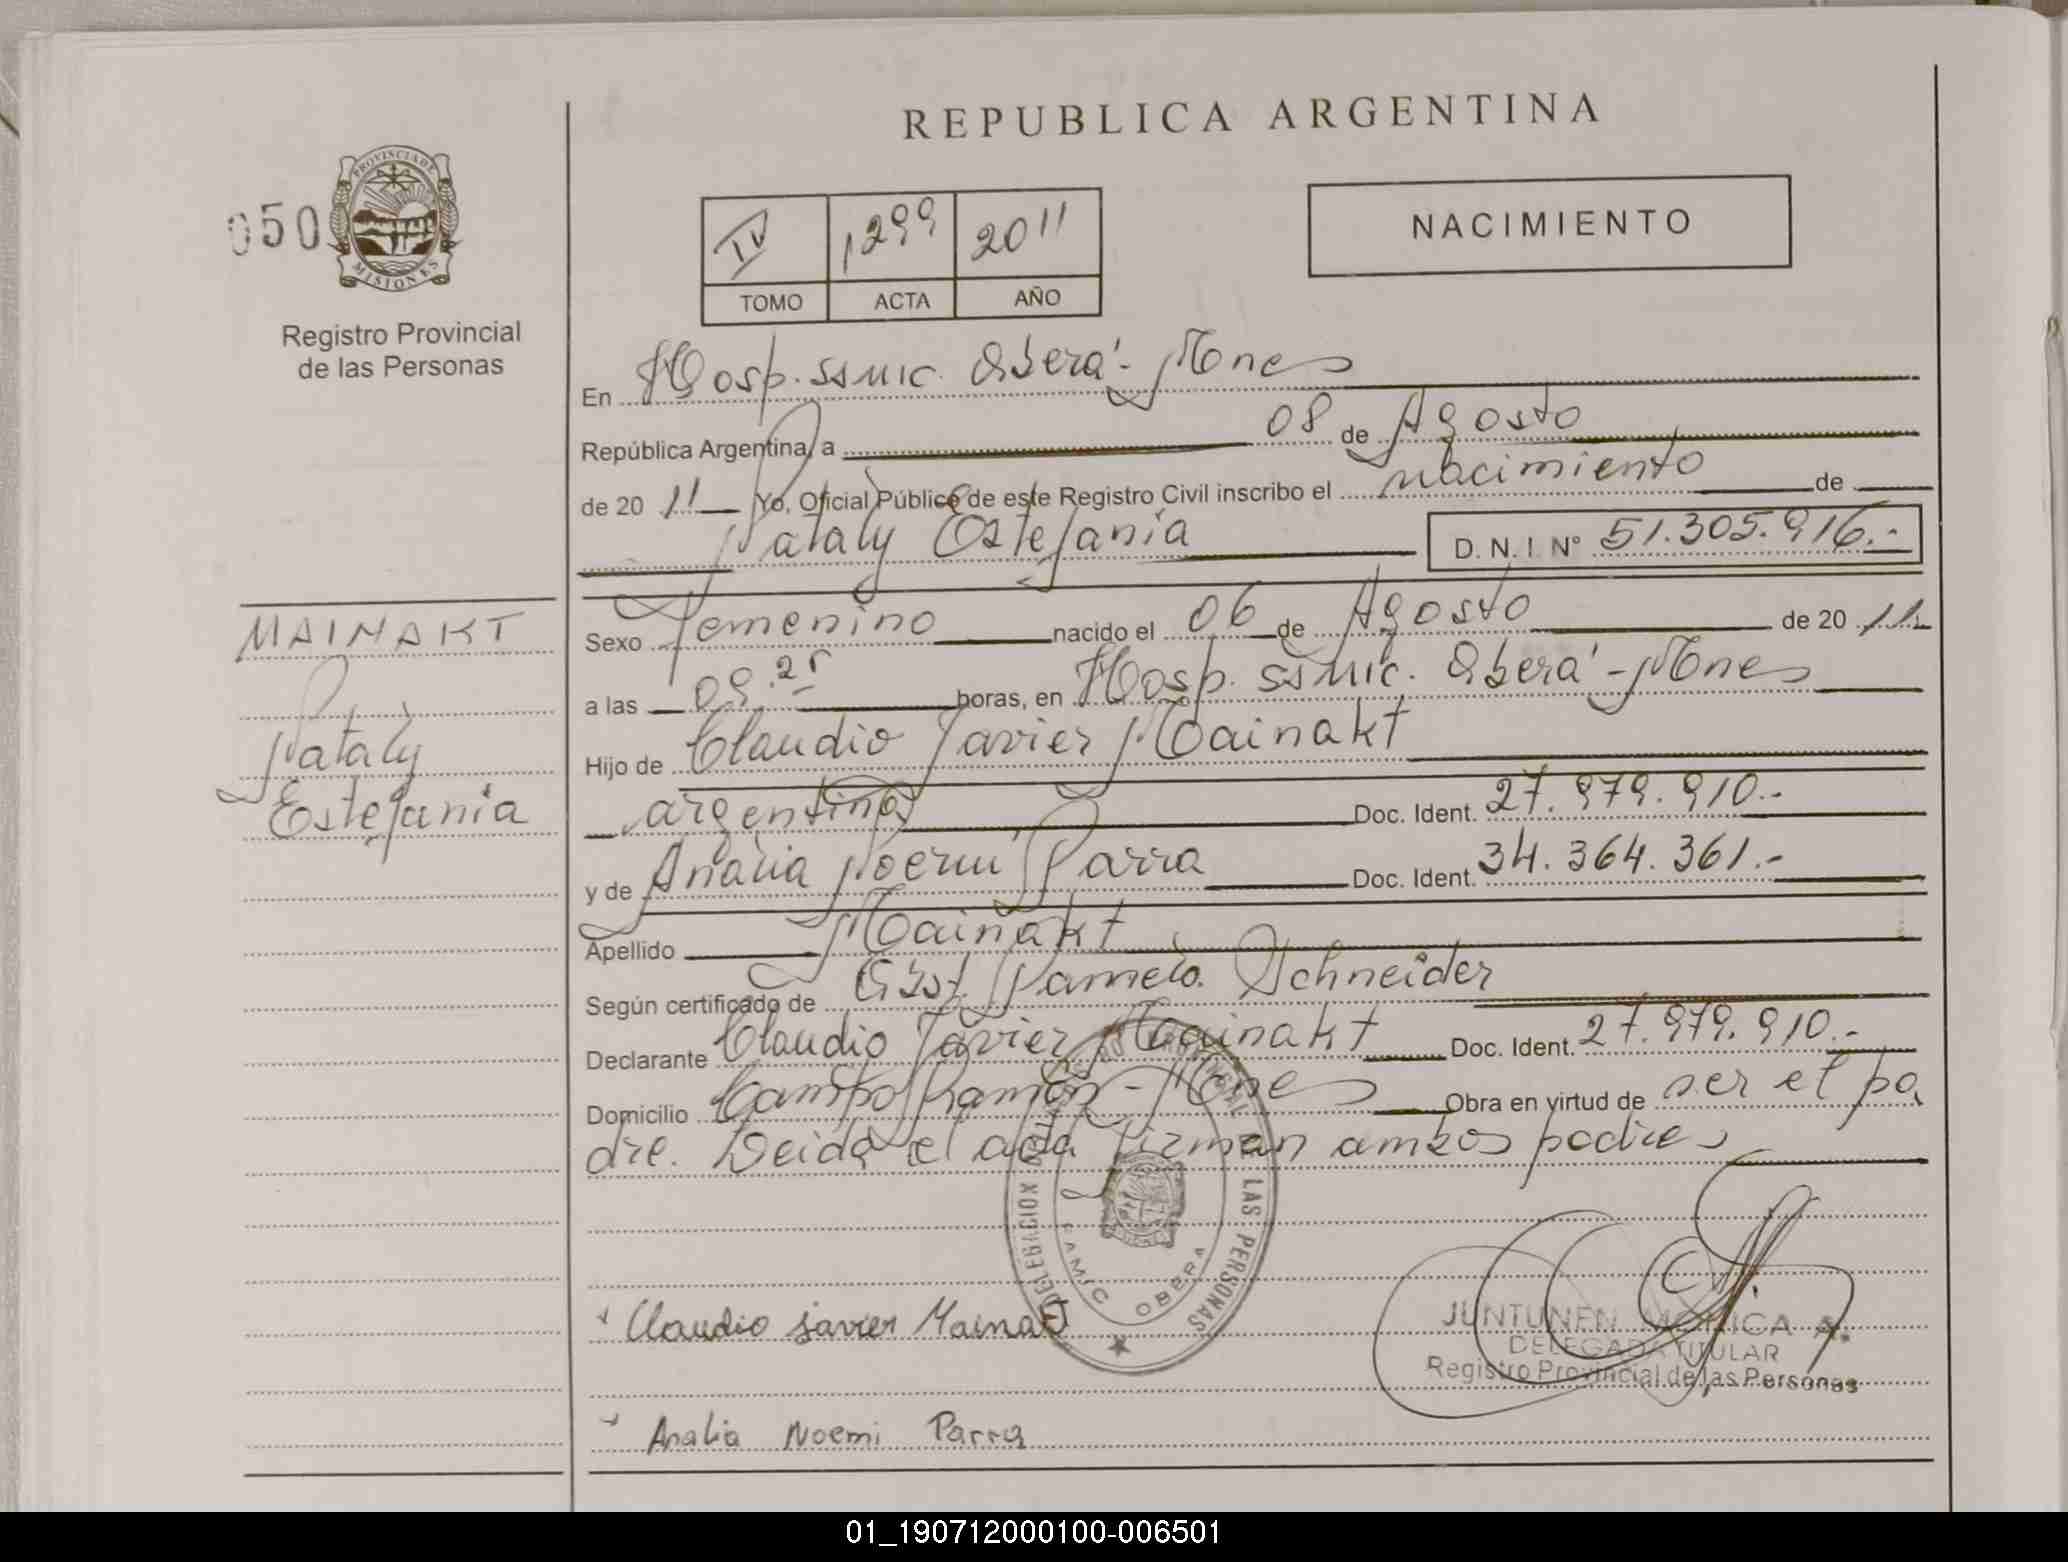 REPUBLICA ARGENTINA
050
PROVINCIA DE
MISIONES
Registro Provincial
de las Personas
IV 1299 2011
TOMO ACTA AÑO
NACIMIENTO
En Hosp. SSMIC. Oberá - Mnes
República Argentina, a 08 de Agosto
de 20 11 Yo, Oficial Público de este Registro Civil inscribo el nacimiento de
Nataly Estefanía D.N.I. N° 51.305.916.-
Sexo Femenino nacido el 06 de Agosto de 20 11
a las 09.25 horas, en Hosp. SSMIC. Oberá - Mnes
Hijo de Claudio Javier Mainakt
argentino Doc. Ident. 27.979.910.-
y de Analia Noemí Parra Doc. Ident. 34.364.361.-
Apellido Mainakt
Según certificado de Obst. Pamela Schneider
Declarante Claudio Javier Mainakt Doc. Ident. 27.979.910.-
Domicilio Campo Ramón - Mnes Obra en virtud de ser el pa
dre. Leida el acta firman ambos padres
MAINAKT
Nataly
Estefania
DELEGACION LAS PERSONAS
SAMIC OBERA
Claudio javier Mainakt
Analia Noemi Parra
JUNTUNEN MONICA A.
DELEGADA TITULAR
Registro Provincial de las Personas
01_190712000100-006501